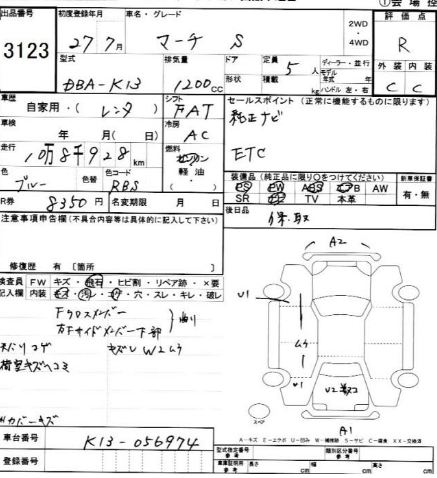 出品番号 初度登録年月 車名・グレード 評価点
3123 27 7月 マーチ S 2WD 4WD R
型式 排気量 ドア 定員 ディーラー・並行
DBA-K13 1200cc 5人
形状 積載 kg ハンドル 左・右 外装 内装
C C
車歴 シフト セールスポイント (正常に機能するものに限ります)
自家用・( レンタ ) FAT 純正ナビ
車検 冷房
年 月( 日) AC ETC
走行 燃料
10万8千928km ガソリン 軽油
色 色替 色コード 装備品 (純正品に限り○をつけてください)
ブルー RBS PS PW ABS エアB AW 有・無
R券 8350円 名変期限 月 日 SR TV 本革
注意事項申告欄(不具合内容等は具体的に記入して下さい) 後日品 保.取
修復歴 有 〔箇所 〕
検査員記入欄 FW キズ・飛石・ヒビ割・リペア跡・×要
内装 キズ・汚レ・コゲ・穴・スレ・キレ・破レ
Fクロスメンバー
右Fサイドメンバー下部 曲り
キズ
荷室キズヘコミ
カバーキズ
A2
U1
A1
スペア
A-キズ E-エクボ U-凹み W-補修跡 S-サビ C-腐食 XX-交換済
車台番号 K13-056974
登録番号
型式指定番号 類別区分番号
長さ cm 幅 cm 高さ cm